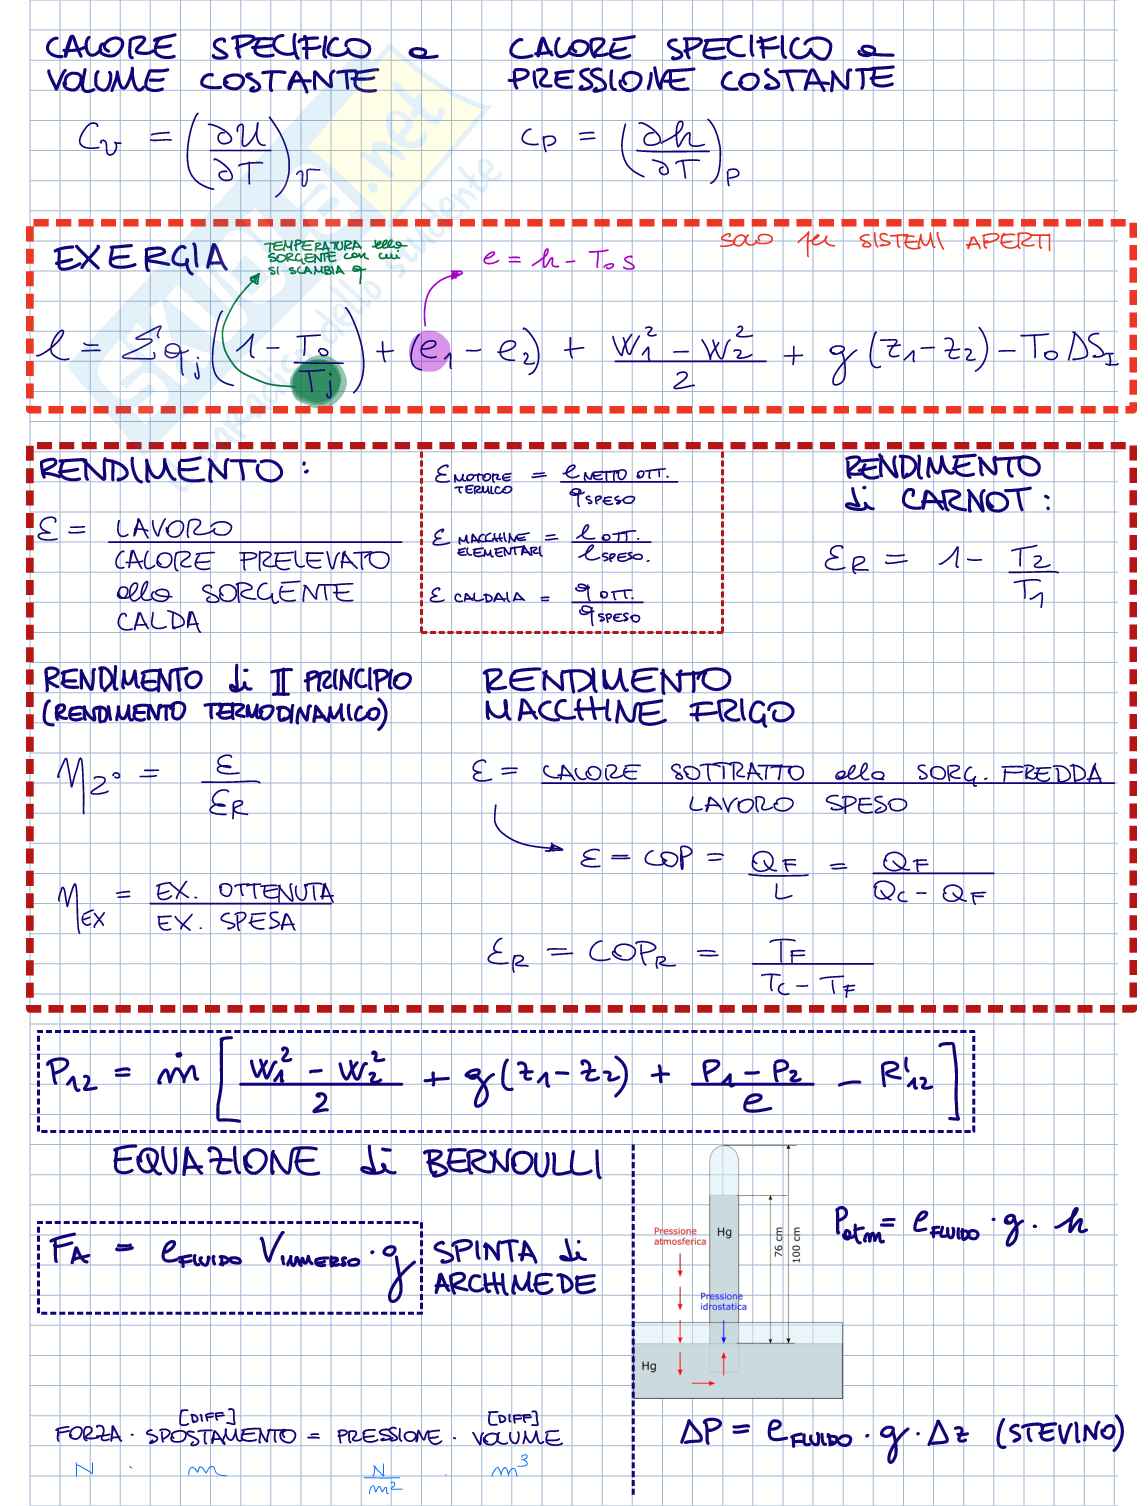 CALORE SPECIFICO a
VOLUME COSTANTE
CALORE SPECIFICO a
PRESSIONE COSTANTE
Cv = (∂U/∂T)v
cP = (∂h/∂T)P
EXERGIA
TEMPERATURA della
SORGENTE con cui
SI SCAMBIA q
e = h - T₀S
SOLO per SISTEMI APERTI
l = Σqj(1 - T₀/Tj) + (e₁ - e₂) + (W₁² - W₂²)/2 + g(z₁-z₂) - T₀ΔSI
RENDIMENTO :
ε = LAVORO
CALORE PRELEVATO
dalla SORGENTE
CALDA
ε MOTORE TERMICO = l NETTO OTT. / q SPESO
ε MACCHINE ELEMENTARI = l OTT. / l SPESO.
ε CALDAIA = q OTT. / q SPESO
RENDIMENTO
di CARNOT :
εR = 1 - T2/T1
RENDIMENTO di II PRINCIPIO
(RENDIMENTO TERMODINAMICO)
η2° = ε/εR
ηEX = EX. OTTENUTA / EX. SPESA
RENDIMENTO
MACCHINE FRIGO
ε = CALORE SOTTRATTO alla SORG. FREDDA
LAVORO SPESO
ε = COP = QF/L = QF/(QC - QF)
εR = COPR = TF/(TC - TF)
P₁₂ = ṁ [(W₁² - W₂²)/2 + g(z₁-z₂) + (P₁ - P₂)/ρ - R'₁₂]
EQUAZIONE di BERNOULLI
FA = ρFLUIDO VIMMERSO · g
SPINTA di
ARCHIMEDE
Pressione
atmosferica
Hg
76 cm
100 cm
Pressione
idrostatica
Hg
Patm = ρFLUIDO · g · h
ΔP = ρFLUIDO · g · Δz (STEVINO)
[DIFF] [DIFF]
FORZA · SPOSTAMENTO = PRESSIONE · VOLUME
N · m N/m² · m³